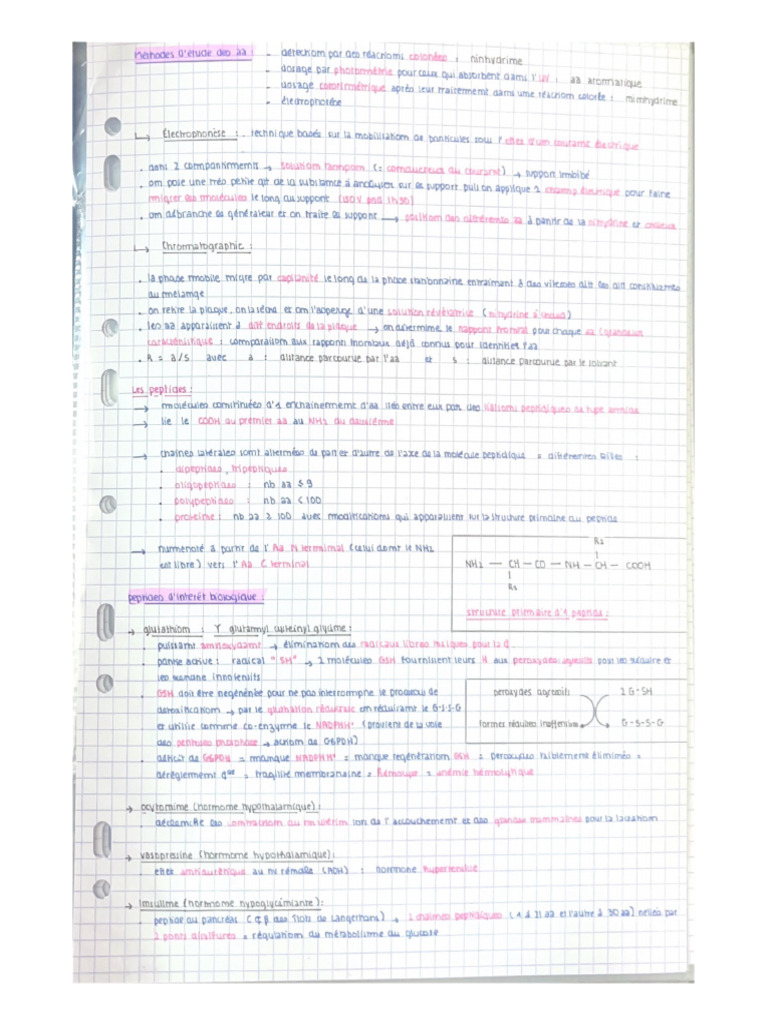 Méthodes d'étude des aa : - détection par des réactions colorées : ninhydrine
- dosage par photométrie pour ceux qui absorbent dans l'UV : aa aromatique
- dosage colorimétrique après leur traitement dans une réaction colorée : ninhydrine
- électrophorèse
↳ Électrophorèse : technique basée sur la mobilisation de particules sous l'effet d'un courant électrique
• dans 2 compartiments → solution tampon (= conducteur du courant) → support imbibé
• on pose une très petite qté de la substance à analyser sur ce support puis on applique 1 champ électrique pour faire
migrer les molécules le long du support (150V pdt 1h30)
• on débranche le générateur et on traite le support → position des différents aa à partir de la nihydrine et
↳ Chromatographie :
• la phase mobile migre par capilarité le long de la phase stationnaire entraînant à des vitesses difft les difft constituants
du mélange
• on retire la plaque, on la sèche et on l'asperge d'une solution révélatrice (nihydrine à chaud)
• les aa apparaissent à difft endroits de la plaque → on détermine le rapport frontal pour chaque aa (grandeur
caractéristique : comparaison aux rapports frontaux déjà connus pour identifier l'aa
• R = a/s avec a : distance parcourue par l'aa et s : distance parcourue par le solvant
Les peptides :
→ molécules constituées d'1 enchaînement d'aa liés entre eux par des liaisons peptidiques de type amides
→ lie le COOH du premier aa au NH2 du deuxième
→ chaînes latérales sont alternées de part et d'autre de l'axe de la molécule peptidique = différentes tailles :
• dipeptides, tripeptiques
• oligopeptides : nb aa ≤ 9
• polypeptides : nb aa < 100
• protéine : nb aa ≥ 100 avec modifications qui apparaissent sur la structure primaire du peptide
→ numéroté à partir de l'Aa N terminal (celui dont le NH2
est libre) vers l'Aa C terminal
R2
NH2 — CH — CO — NH — CH — COOH
R1
structure primaire d'1 peptide :
peptides d'intérêt biologique :
→ glutathion : γ glutamyl cysteinyl glycine :
• puissant antioxydant → élimination des radicaux libres toxiques pour la
• partie active : radical "SH" → 2 molécules GSH fournissent leurs H aux peroxydes agressifs pour les réduire et
les rendre innofensifs
• GSH doit être régénérée pour ne pas interrompre le processus de
détoxification → par le glutation réductase en réduisant le G-S-S-G
et utilise comme co-enzyme le NADPHH+ (provient de la voie
des pentoses phosphate → action de G6PDH)
• déficit de G6PDH = manque NADPHH+ = manque régénération GSH = peroxydes faiblement éliminés =
dérèglement = fragilité membranaine = hémolyse = anémie hémolytique
peroxydes agressifs 2 G-SH
formes réduites inoffensives G-S-S-G
→ ocytomine (hormone hypothalamique) :
• déclenche des contraction du m utérin lors de l'accouchement et des glandes mammaires pour la lactation
→ vasopressine (hormone hypothalamique) :
effet antidiurétique au nv rénale (ADH) : hormone hypertensive
→ Insuline (hormone hypoglycémiante) :
• peptide du pancréas (C β des îlots de Langerhans) → 2 chaînes peptidiques (1 à 21 aa et l'autre à 30 aa) reliés par
2 ponts disulfures = régulation du métabolisme du glucose